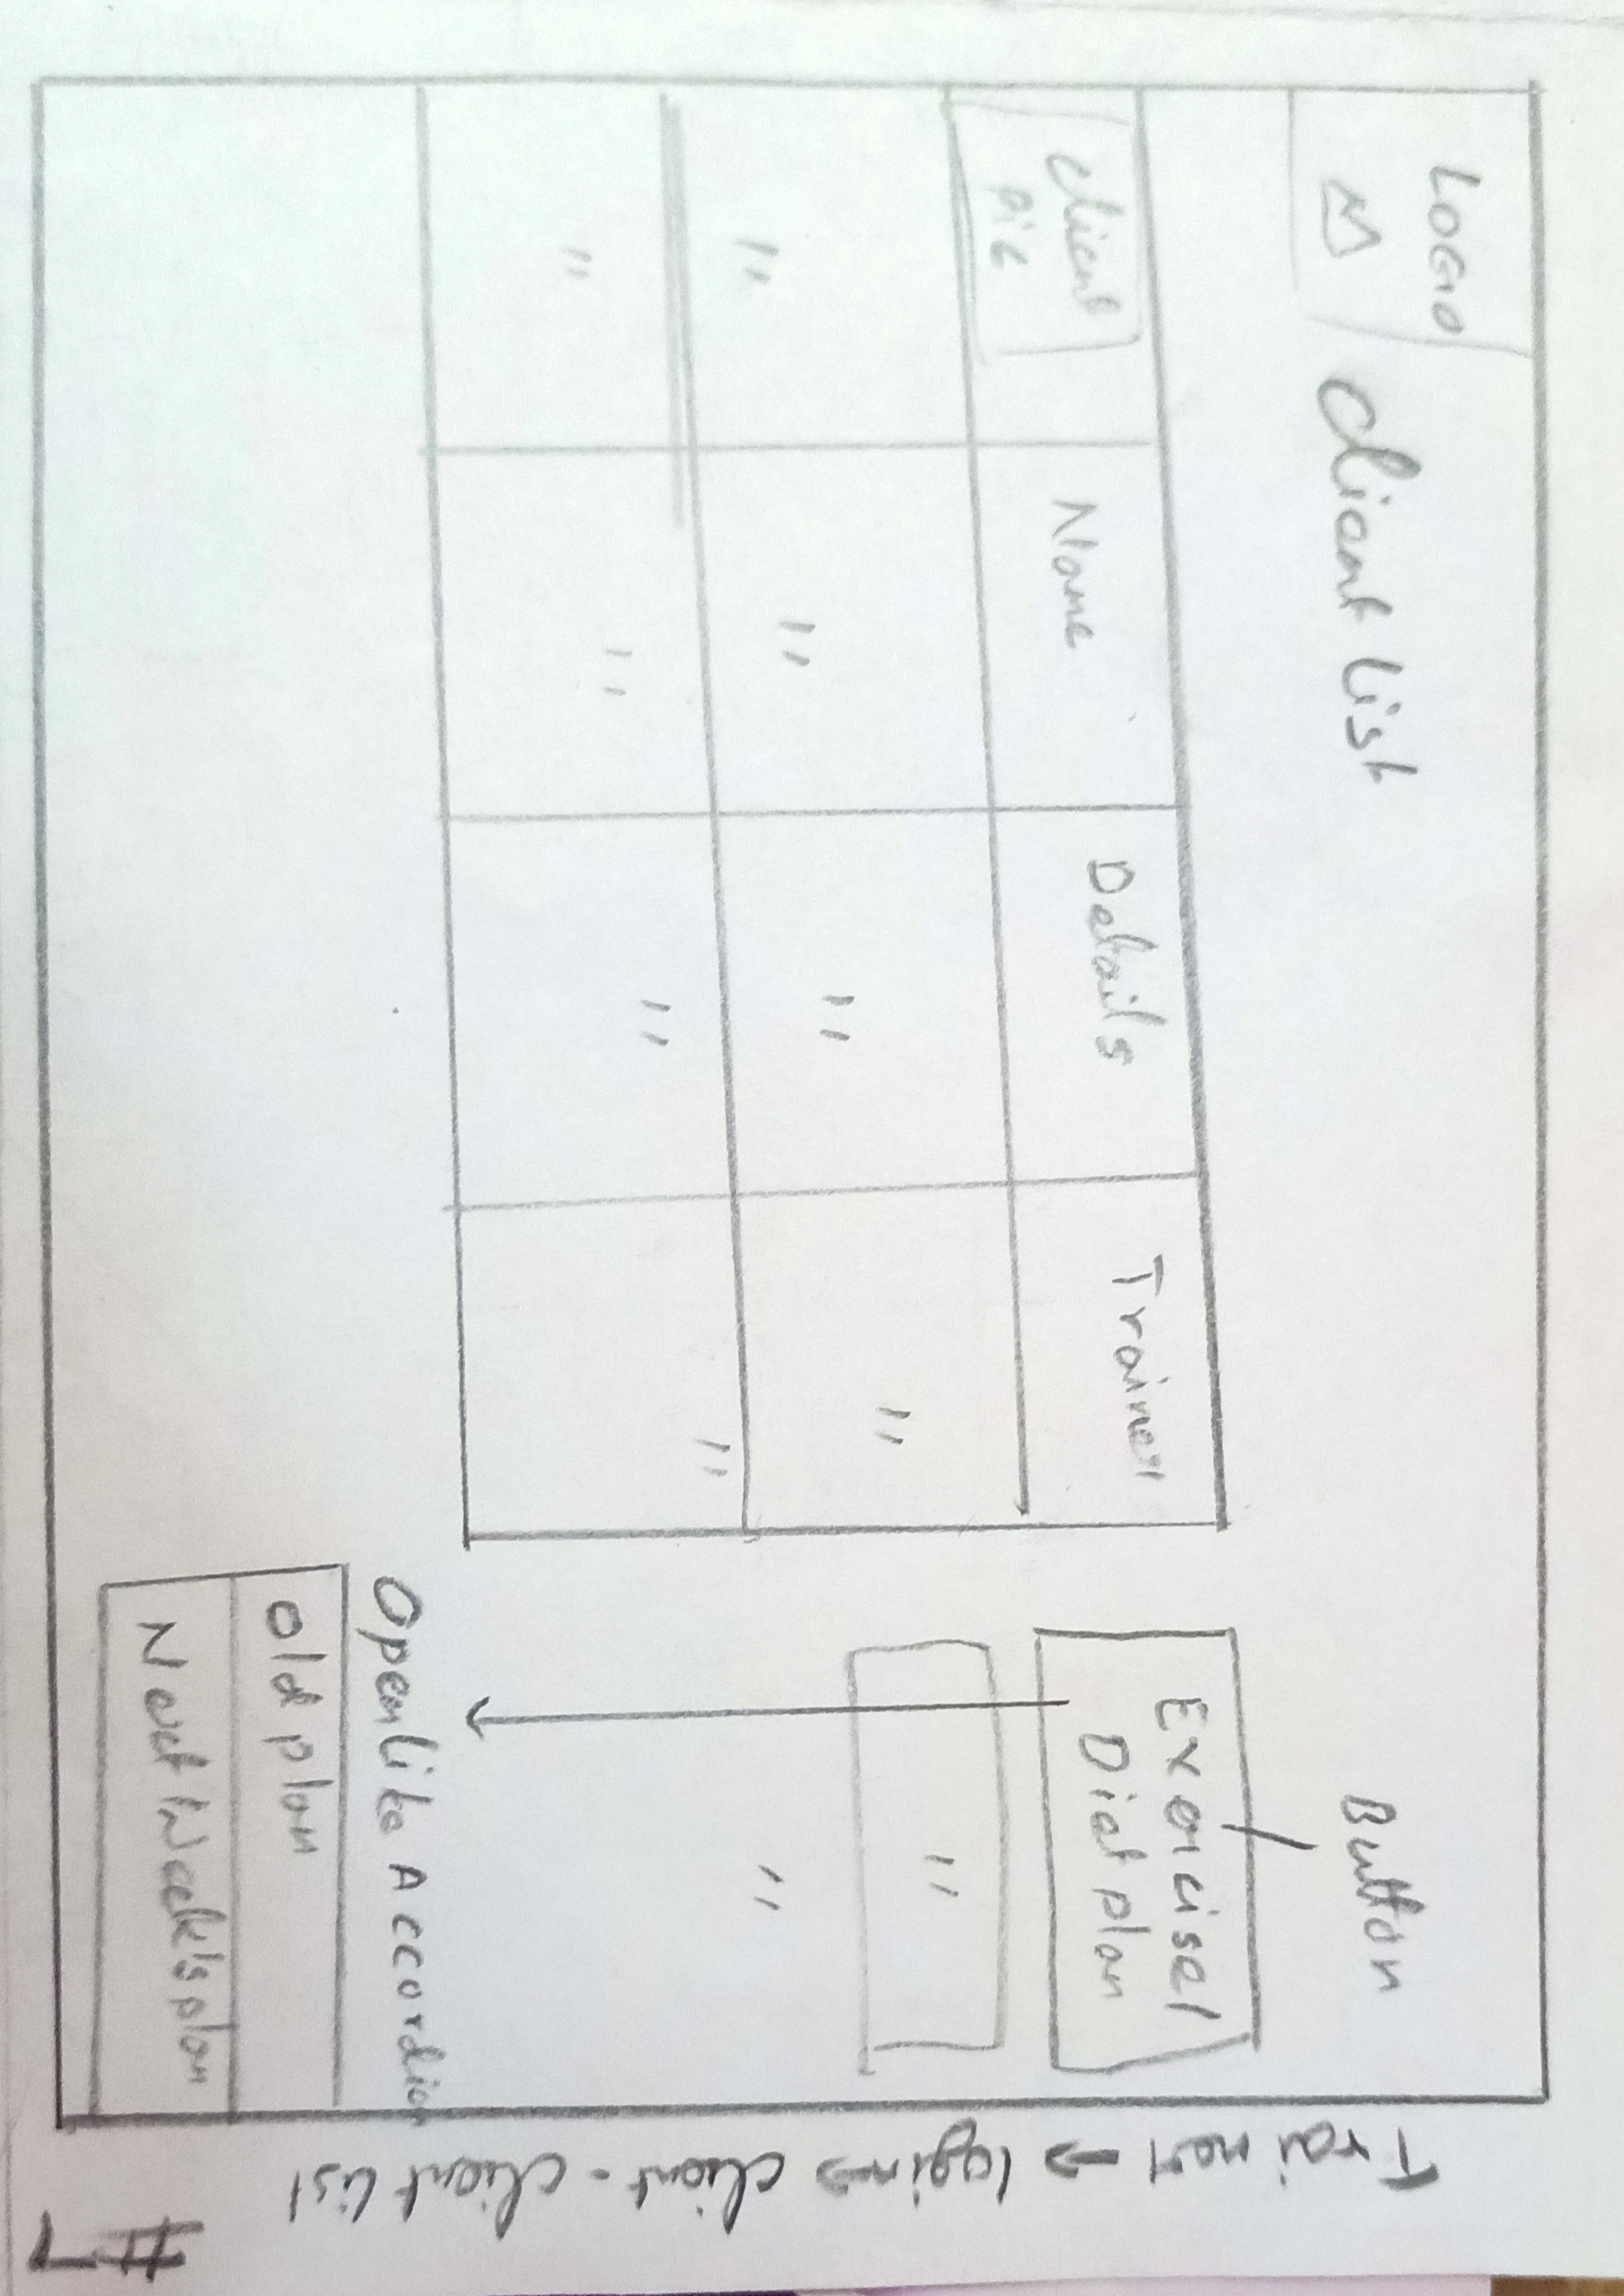 LOGO
M
Client List
Button
Client
pic
Name
Details
Trainer
Exercise/
Diet plan
" " " " "
" " " " "
Open like Accordion
Old plan
Next Week's plan
Trainer → login → client - client list
#7